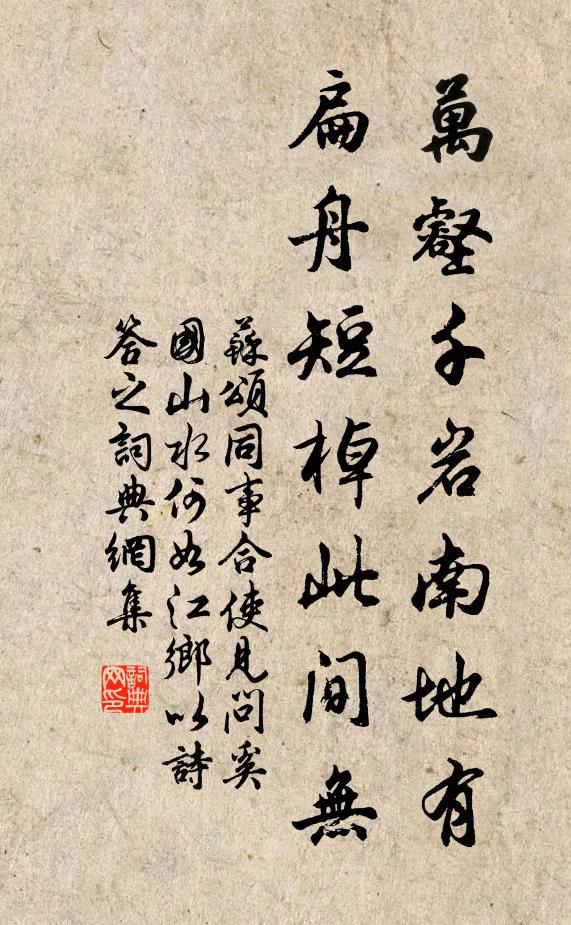 萬壑千岩南地有
扁舟短棹此間無
蘇頌同事合使見問奚
國山水何如江鄉以詩
答之詞典網集
詞典
网印